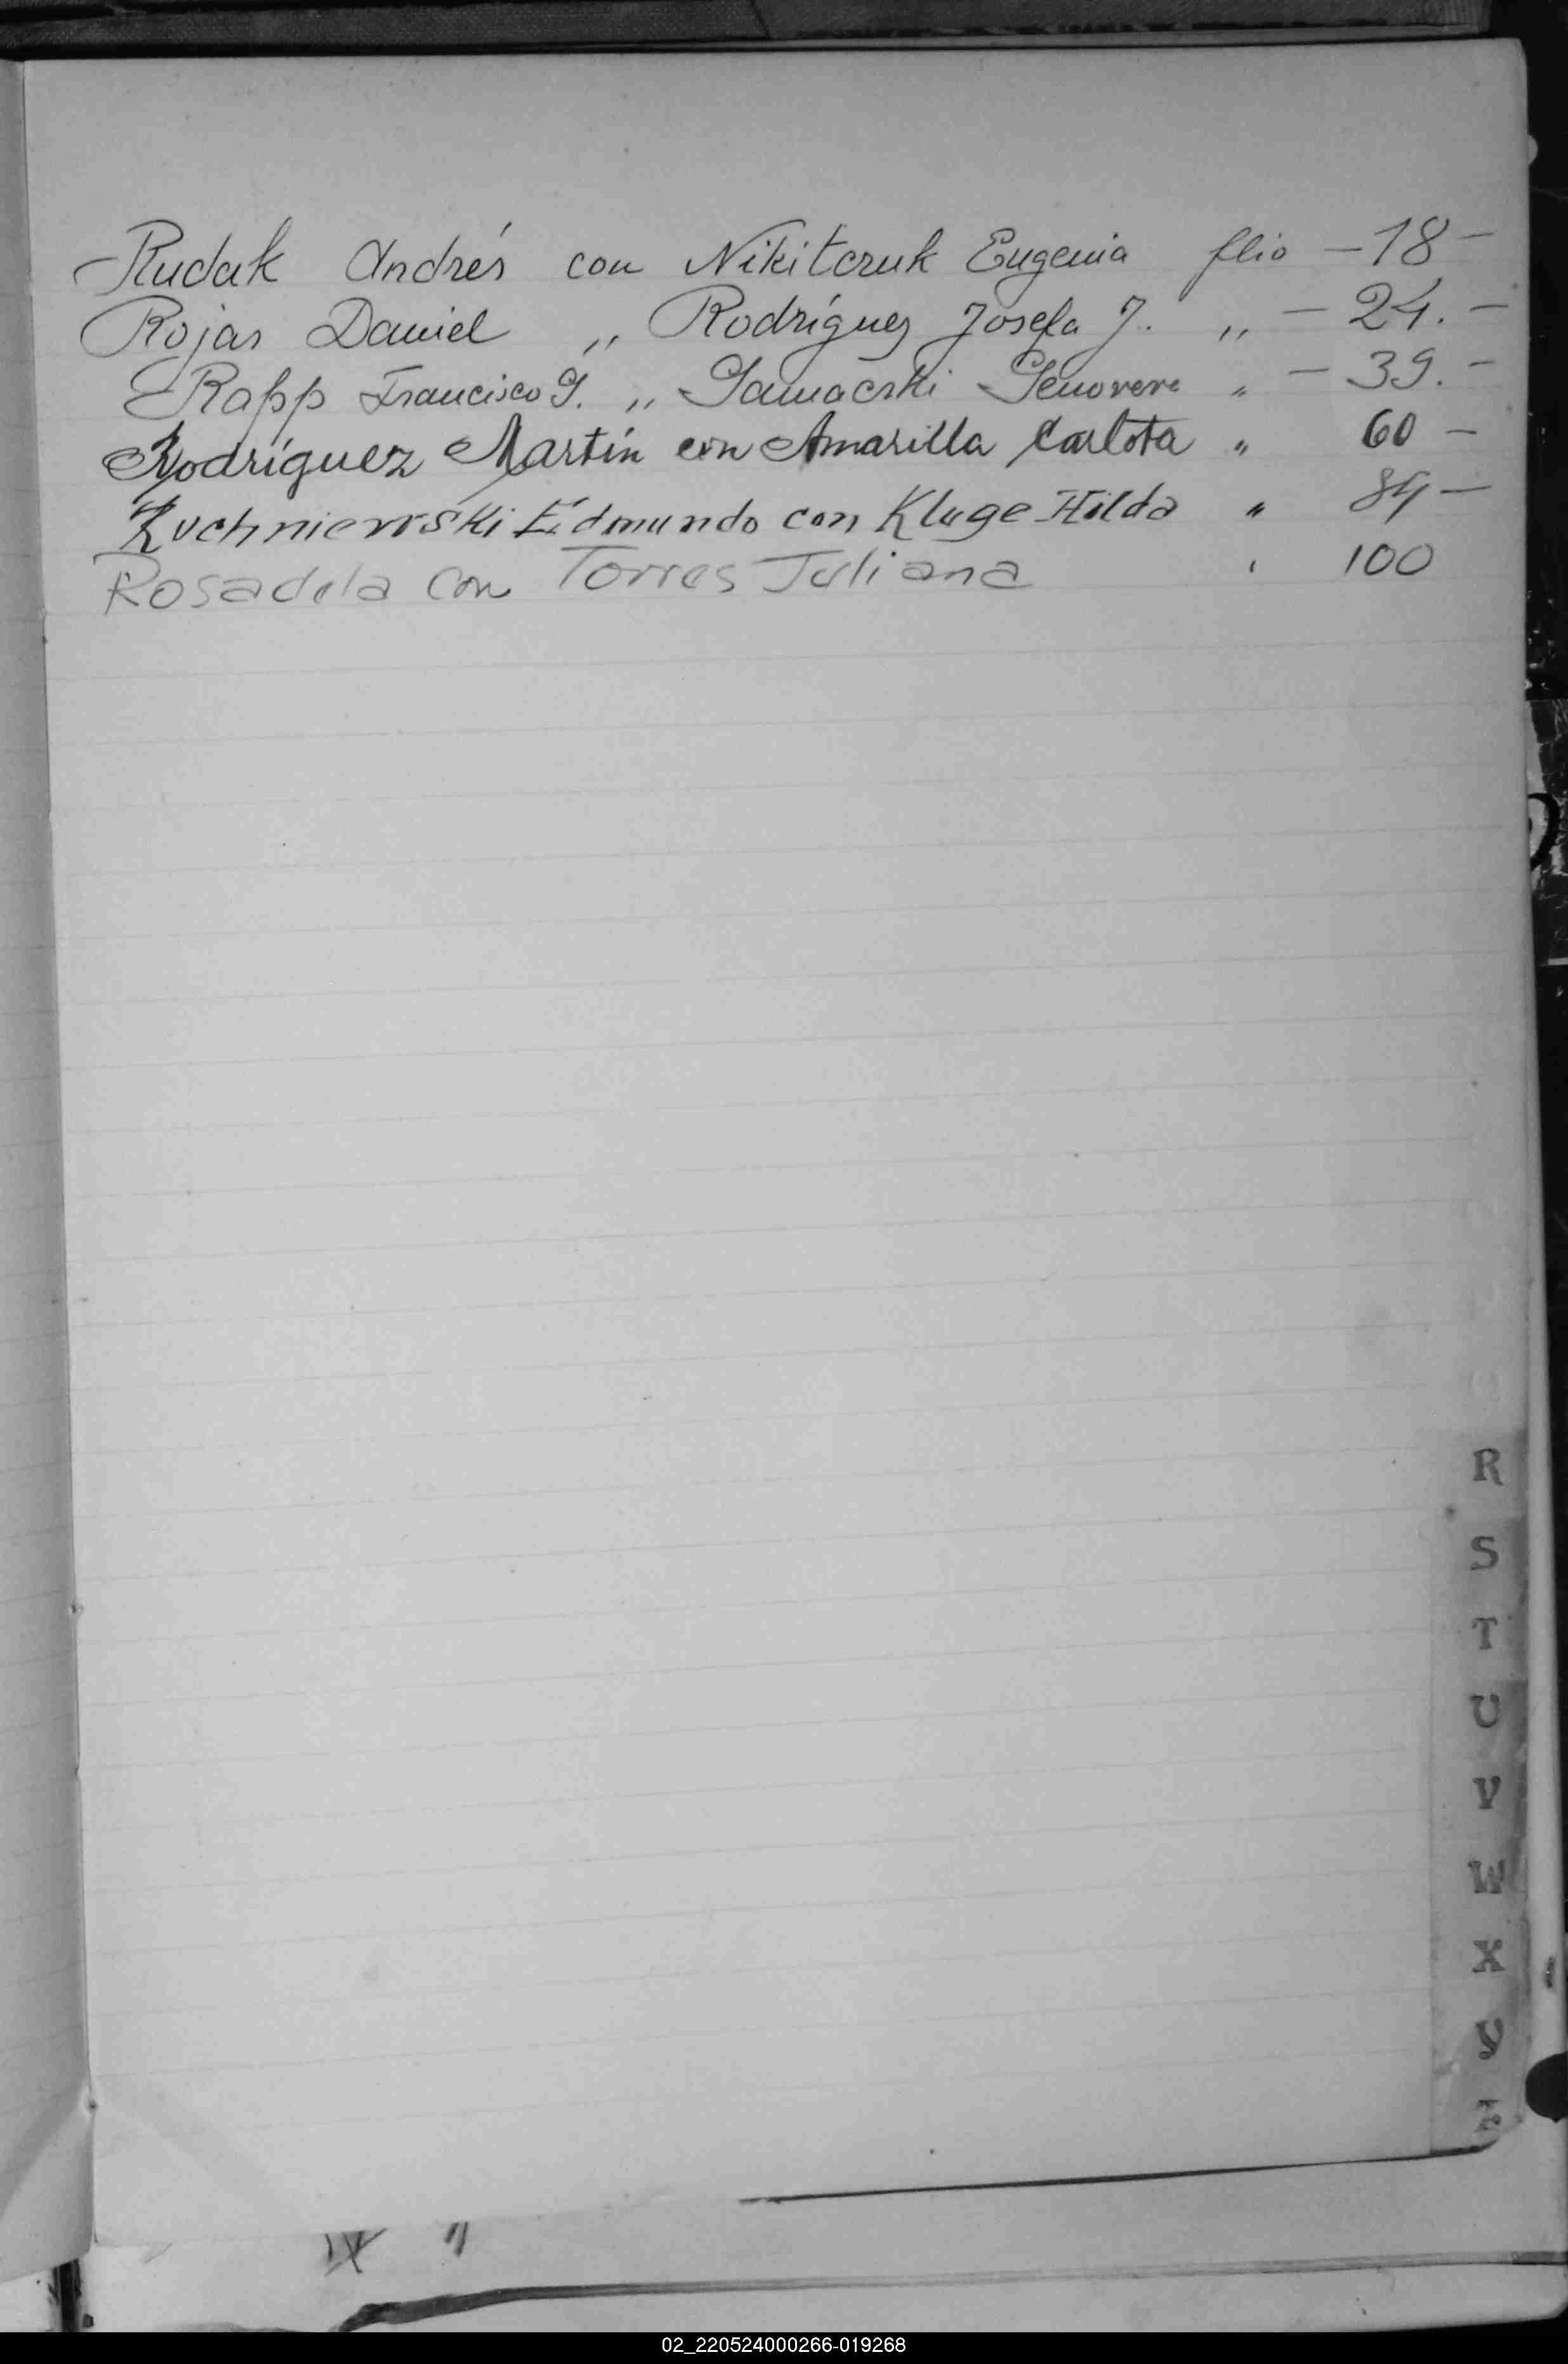 Rudak Andrés con Nikitczuk Eugenia flio - 18 -
Rojas Daniel „ Rodríguez Josefa J. „ - 24. -
Rapp Francisco G. „ Samacski Genoveve „ - 39. -
Rodríguez Martín con Amarilla Carlota „ 60 -
Ruchniewski Edmundo con Kluge Hilda „ 84 -
Rosadela con Torres Juliana " 100
R
S
T
U
V
W
X
IX "
02_220524000266-019268